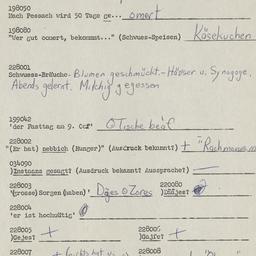 198050
Nach Pessach wird 50 Tage ge... omert
198080
"Wer gut oomert, bekommt..." (Schwues-Speisen) Käsekuchen
228001
Schwuess-Bräuche: Blumen geschmückt.- Häuser u. Synagoge.
Abends gelernt. Milchig gegessen
199042
'der Fasttag am 9. Oof' Tische beaf
228002
"(Er hat) nebbich (Hunger)" (Ausdruck bekannt) + "Rachmones
034090
)Instanz gesogt? (Ausdruck bekannt Aussprache?)
228003 220080
'(grosse)Sorgen(haben)' Dajes Zores )Däjes?
228004
'er ist hochmütig'
228005 228006
)Gajes? + )Gajfe? +
228007 228008